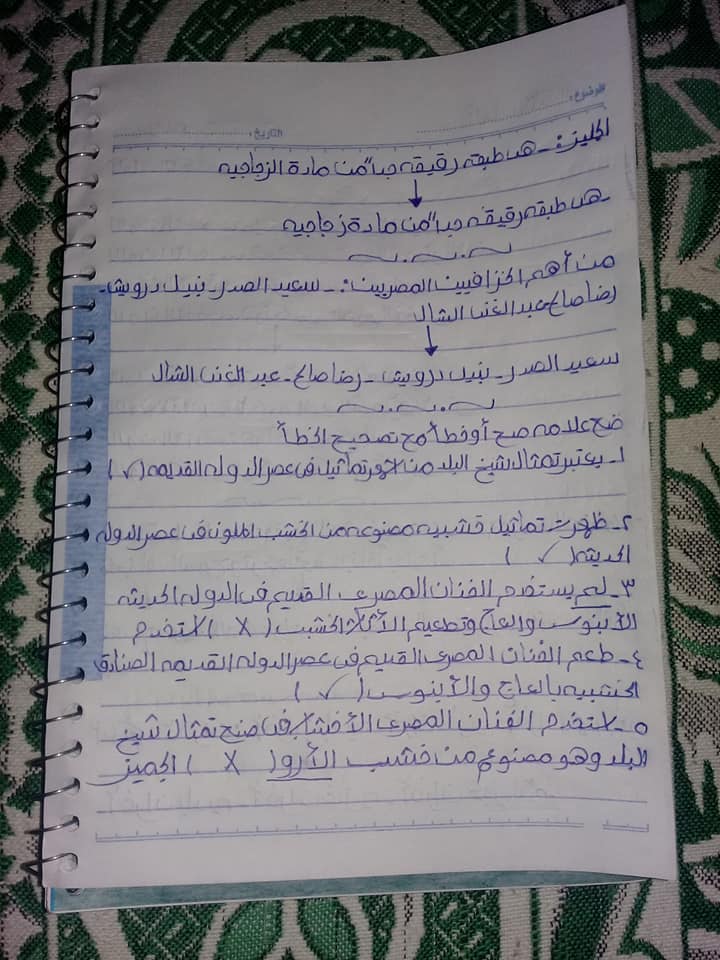 الموضوع:
التاريخ:
الجليز:- هى طبقه رقيقه جداً من مادة الزجاجيه
- هى طبقه رقيقه جداً من مادة زجاجيه
من أهم الخزافيين المصريين:- سعيد الصدر - نبيل درويش -
رضا صالح عبد الغنى الشال
سعيد الصدر - نبيل درويش - رضا صالح - عبد الغنى الشال
ضع علامه صح أو خطأ مع تصحيح الخطأ
١- يعتبر تمثال شيخ البلد من اشهر تماثيل فى عصر الدوله القديمه (✓)
٢- ظهرت تماثيل خشبيه مصنوعه من الخشب الملون فى عصر الدوله
الحديثه ( ✓ )
٣- لم يستخدم الفنان المصرى القديم فى الدوله الحديثه
الأبنوس والعاج وتطعيم الأثاث الخشبى ( X ) استخدم
٤- طعم الفنان المصرى القديم فى عصر الدوله القديمه الصنادق
الخشبيه بالعاج والأبنوس ( ✓ )
٥- استخدم الفنان المصرى الأخشاب فى صنع تمثال شيخ
البلد وهو مصنوع من خشب الأرو ( X ) الجميز